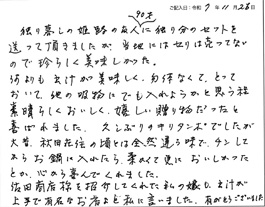 ご記入日：令和 7年 11月 28日
90才
独り暮しの姫路の友人に独り分のセットを
送って頂きましたが、当地にはセリは売ってない
ので珍らしく美味しかった。
何よりもだけが美味しく、勿体なくて、とって
おいて、他の鍋物にでも入れようかと思う程
素晴らしくおいしく、嬉しい贈り物だったと
喜ばれました。久しぶりのキリタンポでしたが
大昔、秋田在住の頃とは全然違う味で、チンして
からお鍋に入れたら、柔わくて更においしかった
とか、心から喜んでくれました。
佐田商店様を紹介してくれた私の娘も、だけが
上手で有名なお店よと私に言いました。有がとうございました